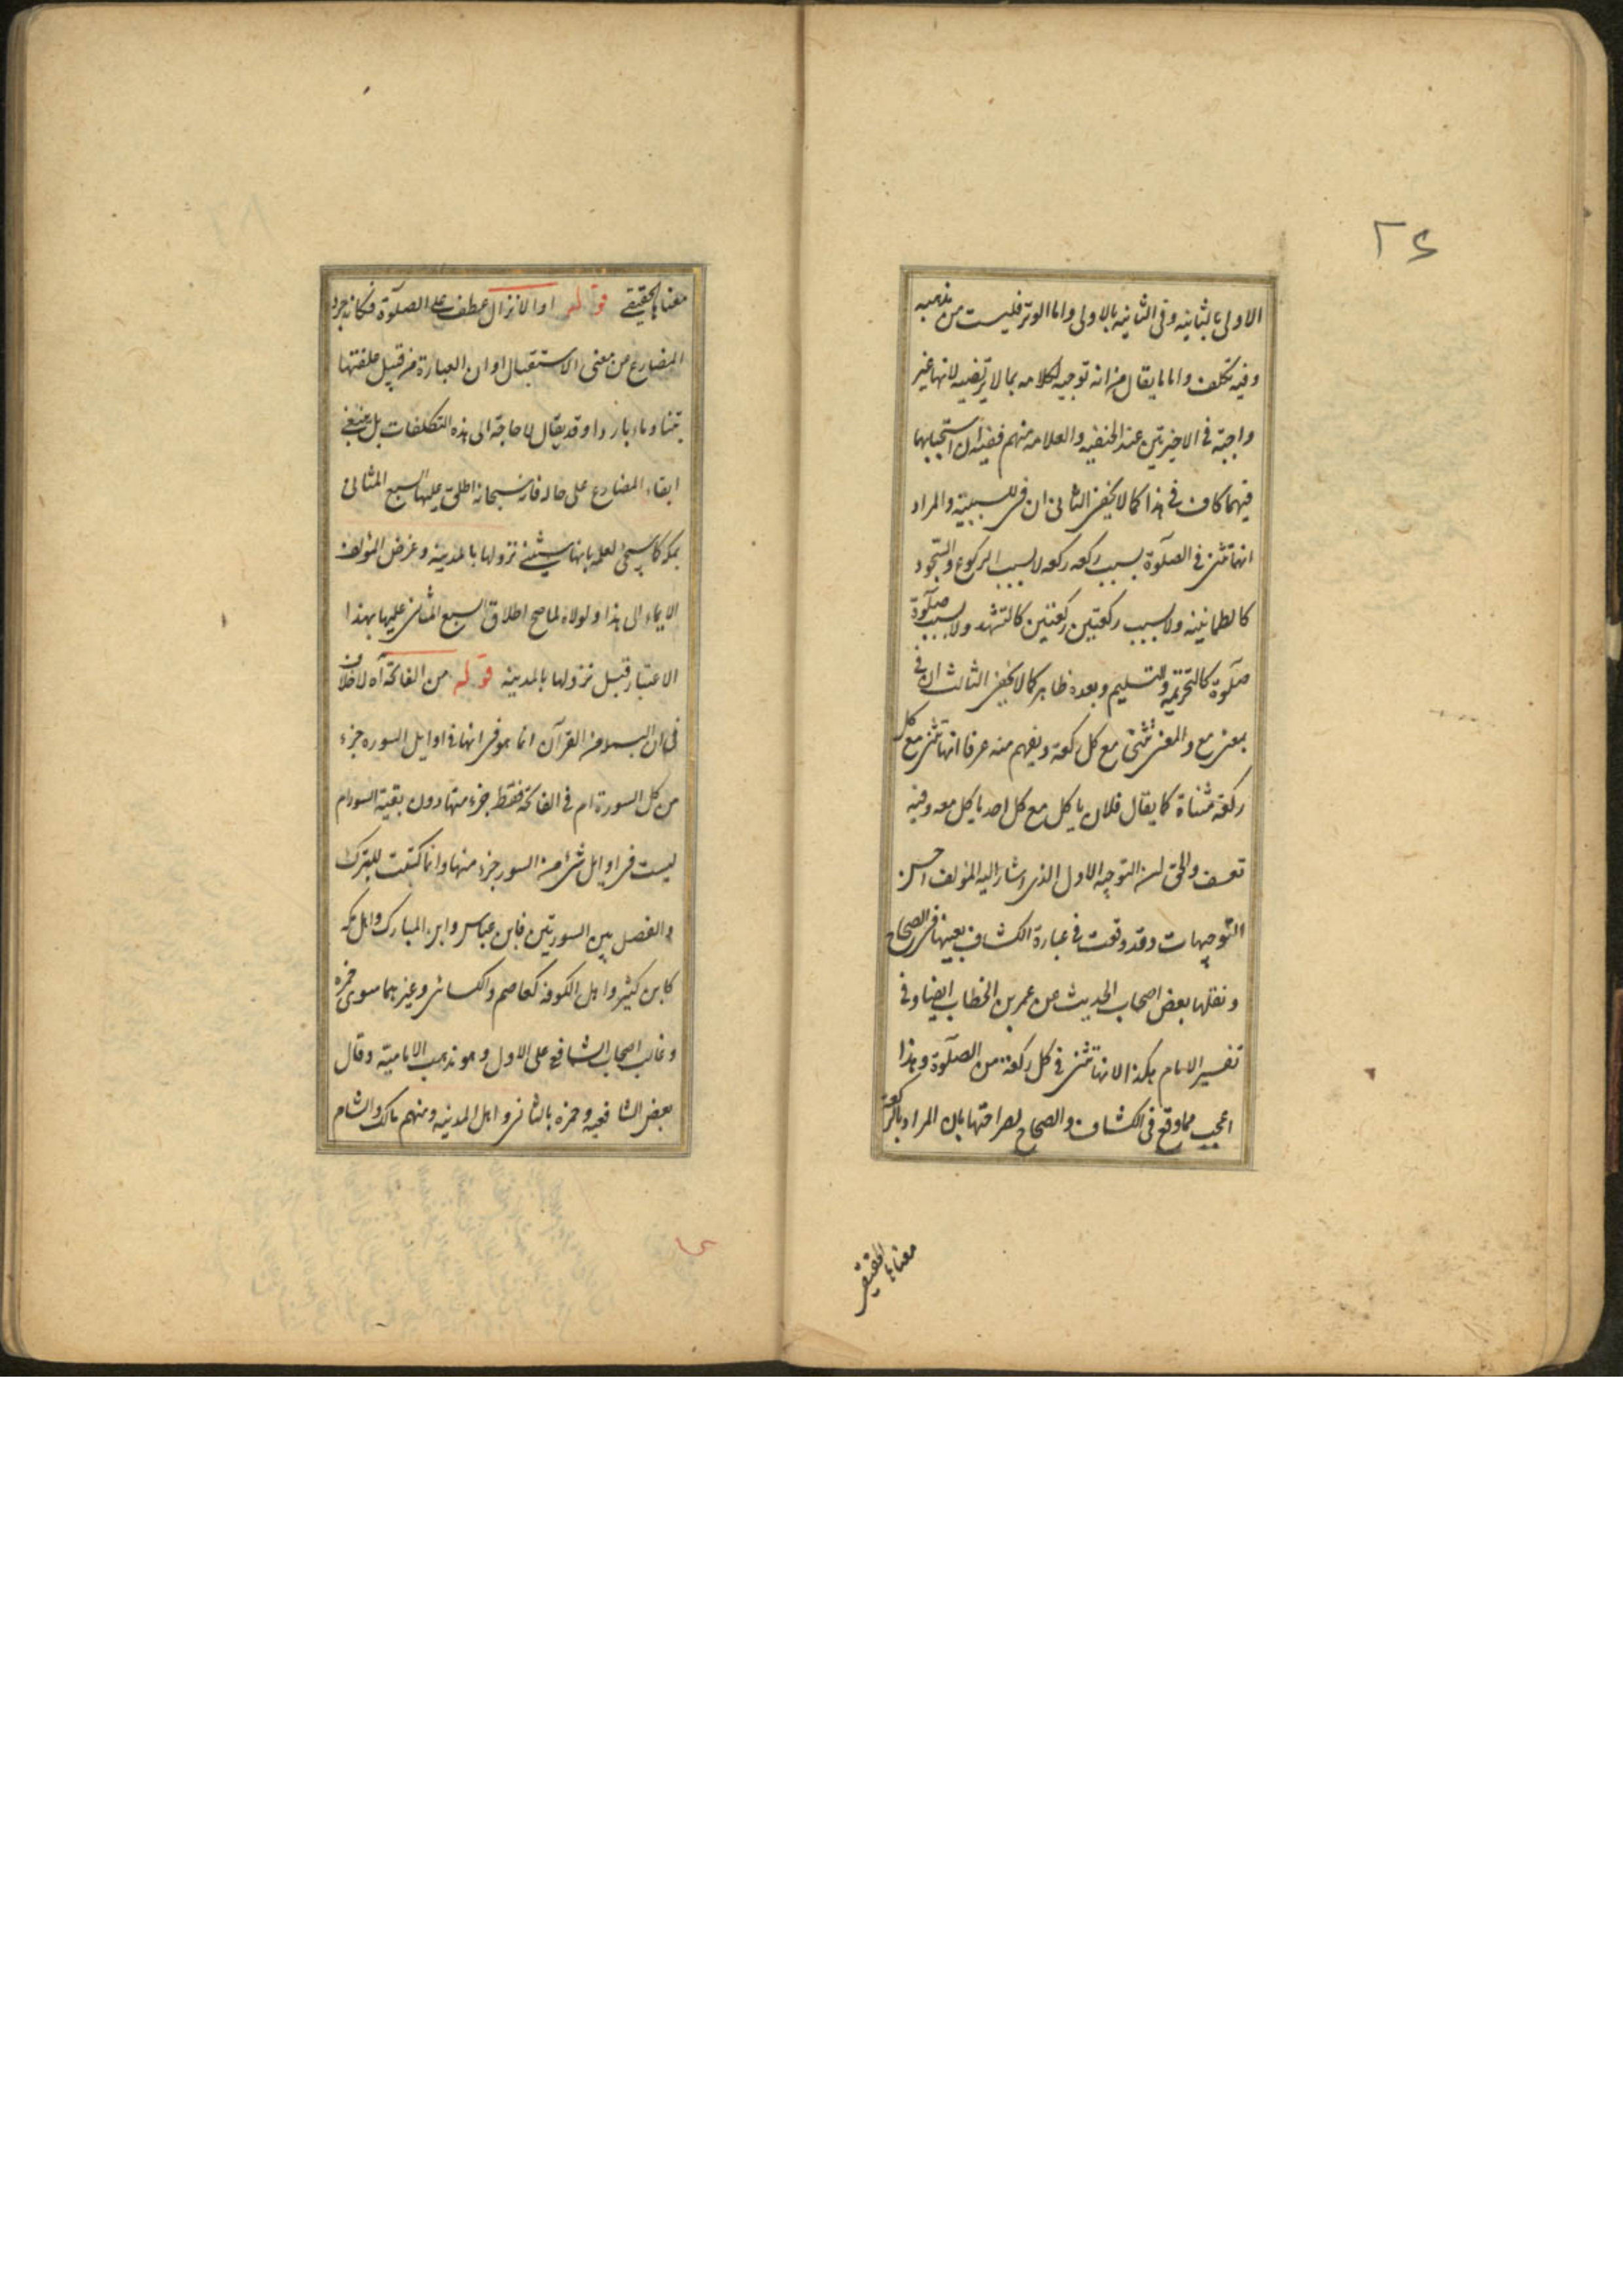 ٢٤
الاولى بالثانيه وفى الثانيه بالاولى واما الوتر فليست من مذهبه
وفيه تكلف واما ما يقال من انه توجيه لكلامه بما لا يرتضيه لانها غير
واجبة فى الاخيرتين عند الحنفيه والعلامه منهم ففيه ان استحبابها
فيهما كاف فى هذا كما لا يخفى الثانى ان فى للسببية والمراد
انها تثنى فى الصلوة بسبب ركعه ركعه لا بسبب الركوع والسجود
كالطمانينه ولا بسبب ركعتين ركعتين كالتشهد ولا بسبب صلوة
صلوة كالتحريمه والتسليم وبعده ظاهر كما لا يخفى الثالث ان فى
بمعنى مع والمعنى تثنى مع كل ركعة ويفهم منه عرفا انها تثنى مع كل
ركعة مثناة كما يقال فلان ياكل مع كل احد ياكل معه وفيه
تعسف والحق ان التوجيه الاول الذى اشار اليه المؤلف احسن
التوجيهات وقد وقعت فى عبارة الكشاف بعينها فى الصحاح
ونقلها بعض اصحاب الحديث عن عمر بن الخطاب ايضا وفى
تفسير الامام هكذا لانها تثنى فى كل ركعة من الصلوة وهذا
اعجب مما وقع فى الكشاف والصحاح لصراحتها بان المراد بالركعة
معناها الحقيقى
معناها الحقيقى قوله او الانزال عطف على الصلوة فكانه جرد
المضارع من معنى الاستقبال او ان العبارة من قبيل علفتها
تبنا وماء باردا وقد يقال لا حاجة الى هذه التكلفات بل ينبغى
ابقاء المضارع على حاله فانه سبحانه اطلق عليها السبع المثانى
بمكه لعلمه بانها سيثنى نزولها بالمدينه وغرض المؤلف
الايماء الى هذا ولولاه لما صح اطلاق السبع المثانى عليها بهذا
الاعتبار قبل نزولها بالمدينه قوله من الفاتحة آه لا خلاف
فى ان البسملة من القرآن انما هو فى انها فى اوايل السوره جزء
من كل السورة ام فى الفاتحة فقط جزء منها دون بقية السور ام
ليست فى اوايل شئ من السور جزء منها وانما كتبت للتبرك
والفصل بين السورتين فابن عباس وابن المبارك واهل مكه
كابن كثير واهل الكوفة كعاصم والكسائى وغيرهما سوى حمزه
وغالب اصحاب الشافعى على الاول وهو مذهب الاماميه وقال
بعض الشافعيه وحمزه بالثانى واهل المدينه ومنهم مالك والشام